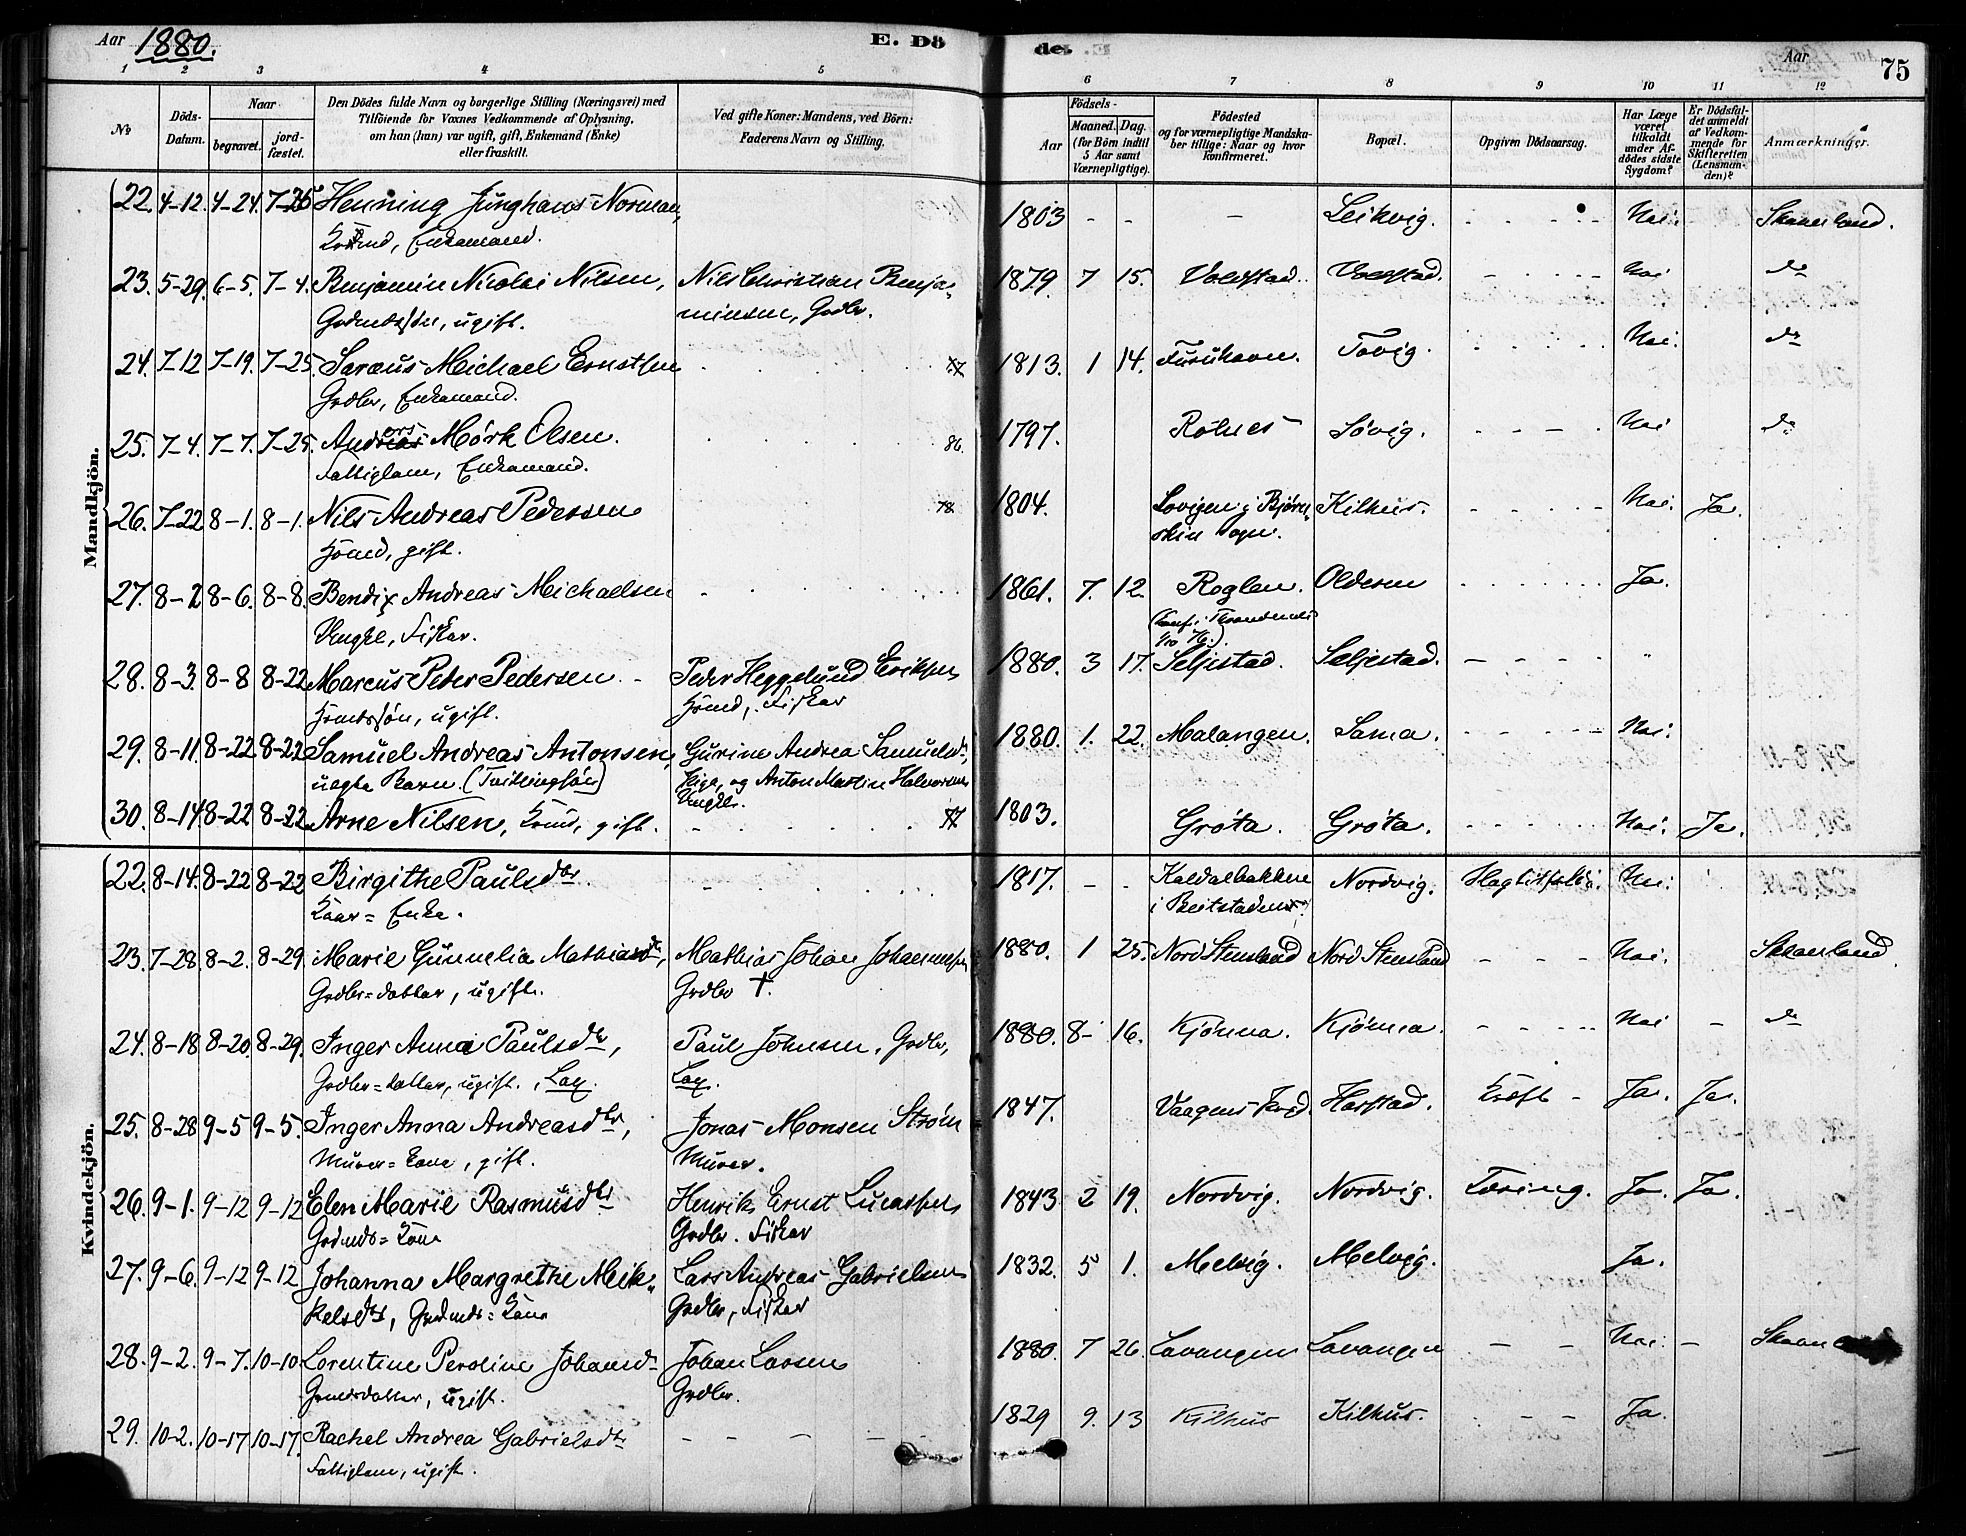 Aar 1880. E. Dö de. Aar 75
1 2 3 4 5 6 7 8 9 10 11 12
No Döds-Datum. Naar begravet. jord-fæstet. Den Dödes fulde Navn og borgerlige Stilling (Næringsvei) med Tilföiende for Voxnes Vedkommende af Oplysning, om han (hun) var ugift, gift, Enkemand (Enke) eller fraskilt. Ved gifte Koner: Mandens, ved Börn: Faderens Navn og Stilling. Födsels- Aar Maaned. Dag. (for Börn indtil 5 Aar samt Værnepligtige). Födested og for værnepligtige Mandskaber tillige: Naar og hvor konfirmeret. Bopæl. Opgiven Dödsaarsag. Har Læge været tilkaldt under Afdödes sidste Sygdom? Er Dödsfaldet anmeldt af Vedkommende for Skifteretten (Lensmanden)? Anmærkninger.
Mandkjön.
22. 4-12. 4-24. 7-25 Henning Junghans Norman, 1803 - - - Leikvig. Nei. Skaanland.
Enkemand.
23. 5-29. 6-5. 7-4. Benjamin Nicolai Nilsen, Nils Christian Benja- 1879. 7 15. Voldstad. Voldstad. Nei do
Grdmdssøn, ugift. minsen, Grdbr.
24. 7-12 7-19. 7-25. Saræus Michael Ernstsen 1813. 1 14. Furuhavn. Tovig. Nei. do
Grdbr, Enkemand.
25. 7-4. 7-7. 7-25. Anders Mörk Olsen. 86. 1797. Rølnes Søvig. Nei do
Fattiglem, Enkemand.
26. 7-22 8-1. 8-1. Nils Andreas Pedersen 78. 1804. Lovigen i Bjørn- Kilhus. Nei. Ja.
Hsmd, gift. skin Sogn.
27. 8-2 8-6. 8-8. Bendix Andreas Michaelsen 1861. 7. 12. Roglen. Olderen Ja.
Ungkl, Fisker. (Conf. i Trondenes
28. 8-3. 8-8 8-22 Marcus Peter Pedersen Peder Heggelund Eriksen 1880. 3 17. Seljestad. Seljestad.
Hsmdssøn, ugift. Hsmd, Fisker
29. 8-11. 8-22 8-22 Samuel Andreas Antonsen, Gurine Andrea Samuelsdr, 1880. 1. 22. Malangen. Sama. Nei.
uægte Barn. (Tvillingsøn) Pige, og Anton Martin Halvorsen
Ungkl.
30. 8-14 8-22 8-22 Arne Nilsen, gift. 1803. Grøta. Grøta. Nei. Ja.
Kvindekjön.
22. 8-14. 8-22 8-22 Birgithe Paulsdtr. 1817. - - Kaldalbakken Nordvig. Nei.
Kaar = Enke. i Beitstaden
23. 7-28. 8-2. 8-29. Marie Gunnelia Mathiasdtr, Mathias Johan Johannessen 1880. 1 25. Nord Stensland Nord Stensland Nei. Skaanland.
Grdbr = datter, ugift. Grdbr †.
24. 8-18 8-20. 8-29. Inger Anna Paulsdtr, Paul Johnsen, Grdbr, 1880. 8- 16. Kjønna. Kjønna. Nei - do
Grdbr = datter, ugift., Lap. Lap.
25. 8-28 9-5 9-5. Inger Anna Andreasdtr, Jonas Monsen Strøm 1847. Vaagens Præd. Harstad. Kræft - Ja. Ja.
Murer = Kone, gift. Murer.
26. 9-1. 9-12 9-12 Elen Marie Rasmusdtr Henrik Ernst Lucassen 1843 2 19. Nordvig. Nordvig. Tæring. Ja. Ja.
Grdmds = Kone Grdbr. Fisker
27. 9-6. 9-12 9-12 Johanna Margrethe Mik- Lars Andreas Gabrielsen 1832. 5 1. Melvig. Melvig. Ja.
kelsdtr, Grdmds = Kone Grdbr, Fisker
28. 9-2. 9-7. 10-10 Lorentine Peroline Johansdr Johan Larsen 1880. 7 26. Lavangen Lavangen Nei. - Skaan
Grmdsdatter, ugift. Grdbr.
29. 10-2. 10-17 10-17. Rachel Andrea Gabrielsdtr 1829 9. 13 Kilhus Kilhus. Ja.
Fattiglem, ugift.